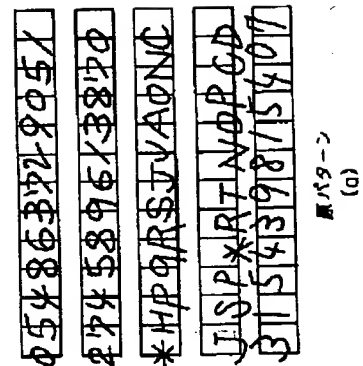 054863729051
274589613870
*HPQRSJVAONC
JSP*RTNDPGD
315439815407
原パターン
(a)